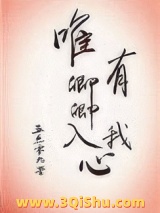 唯有
卿卿
入我心
五点零九 著
www.3Qishu.com